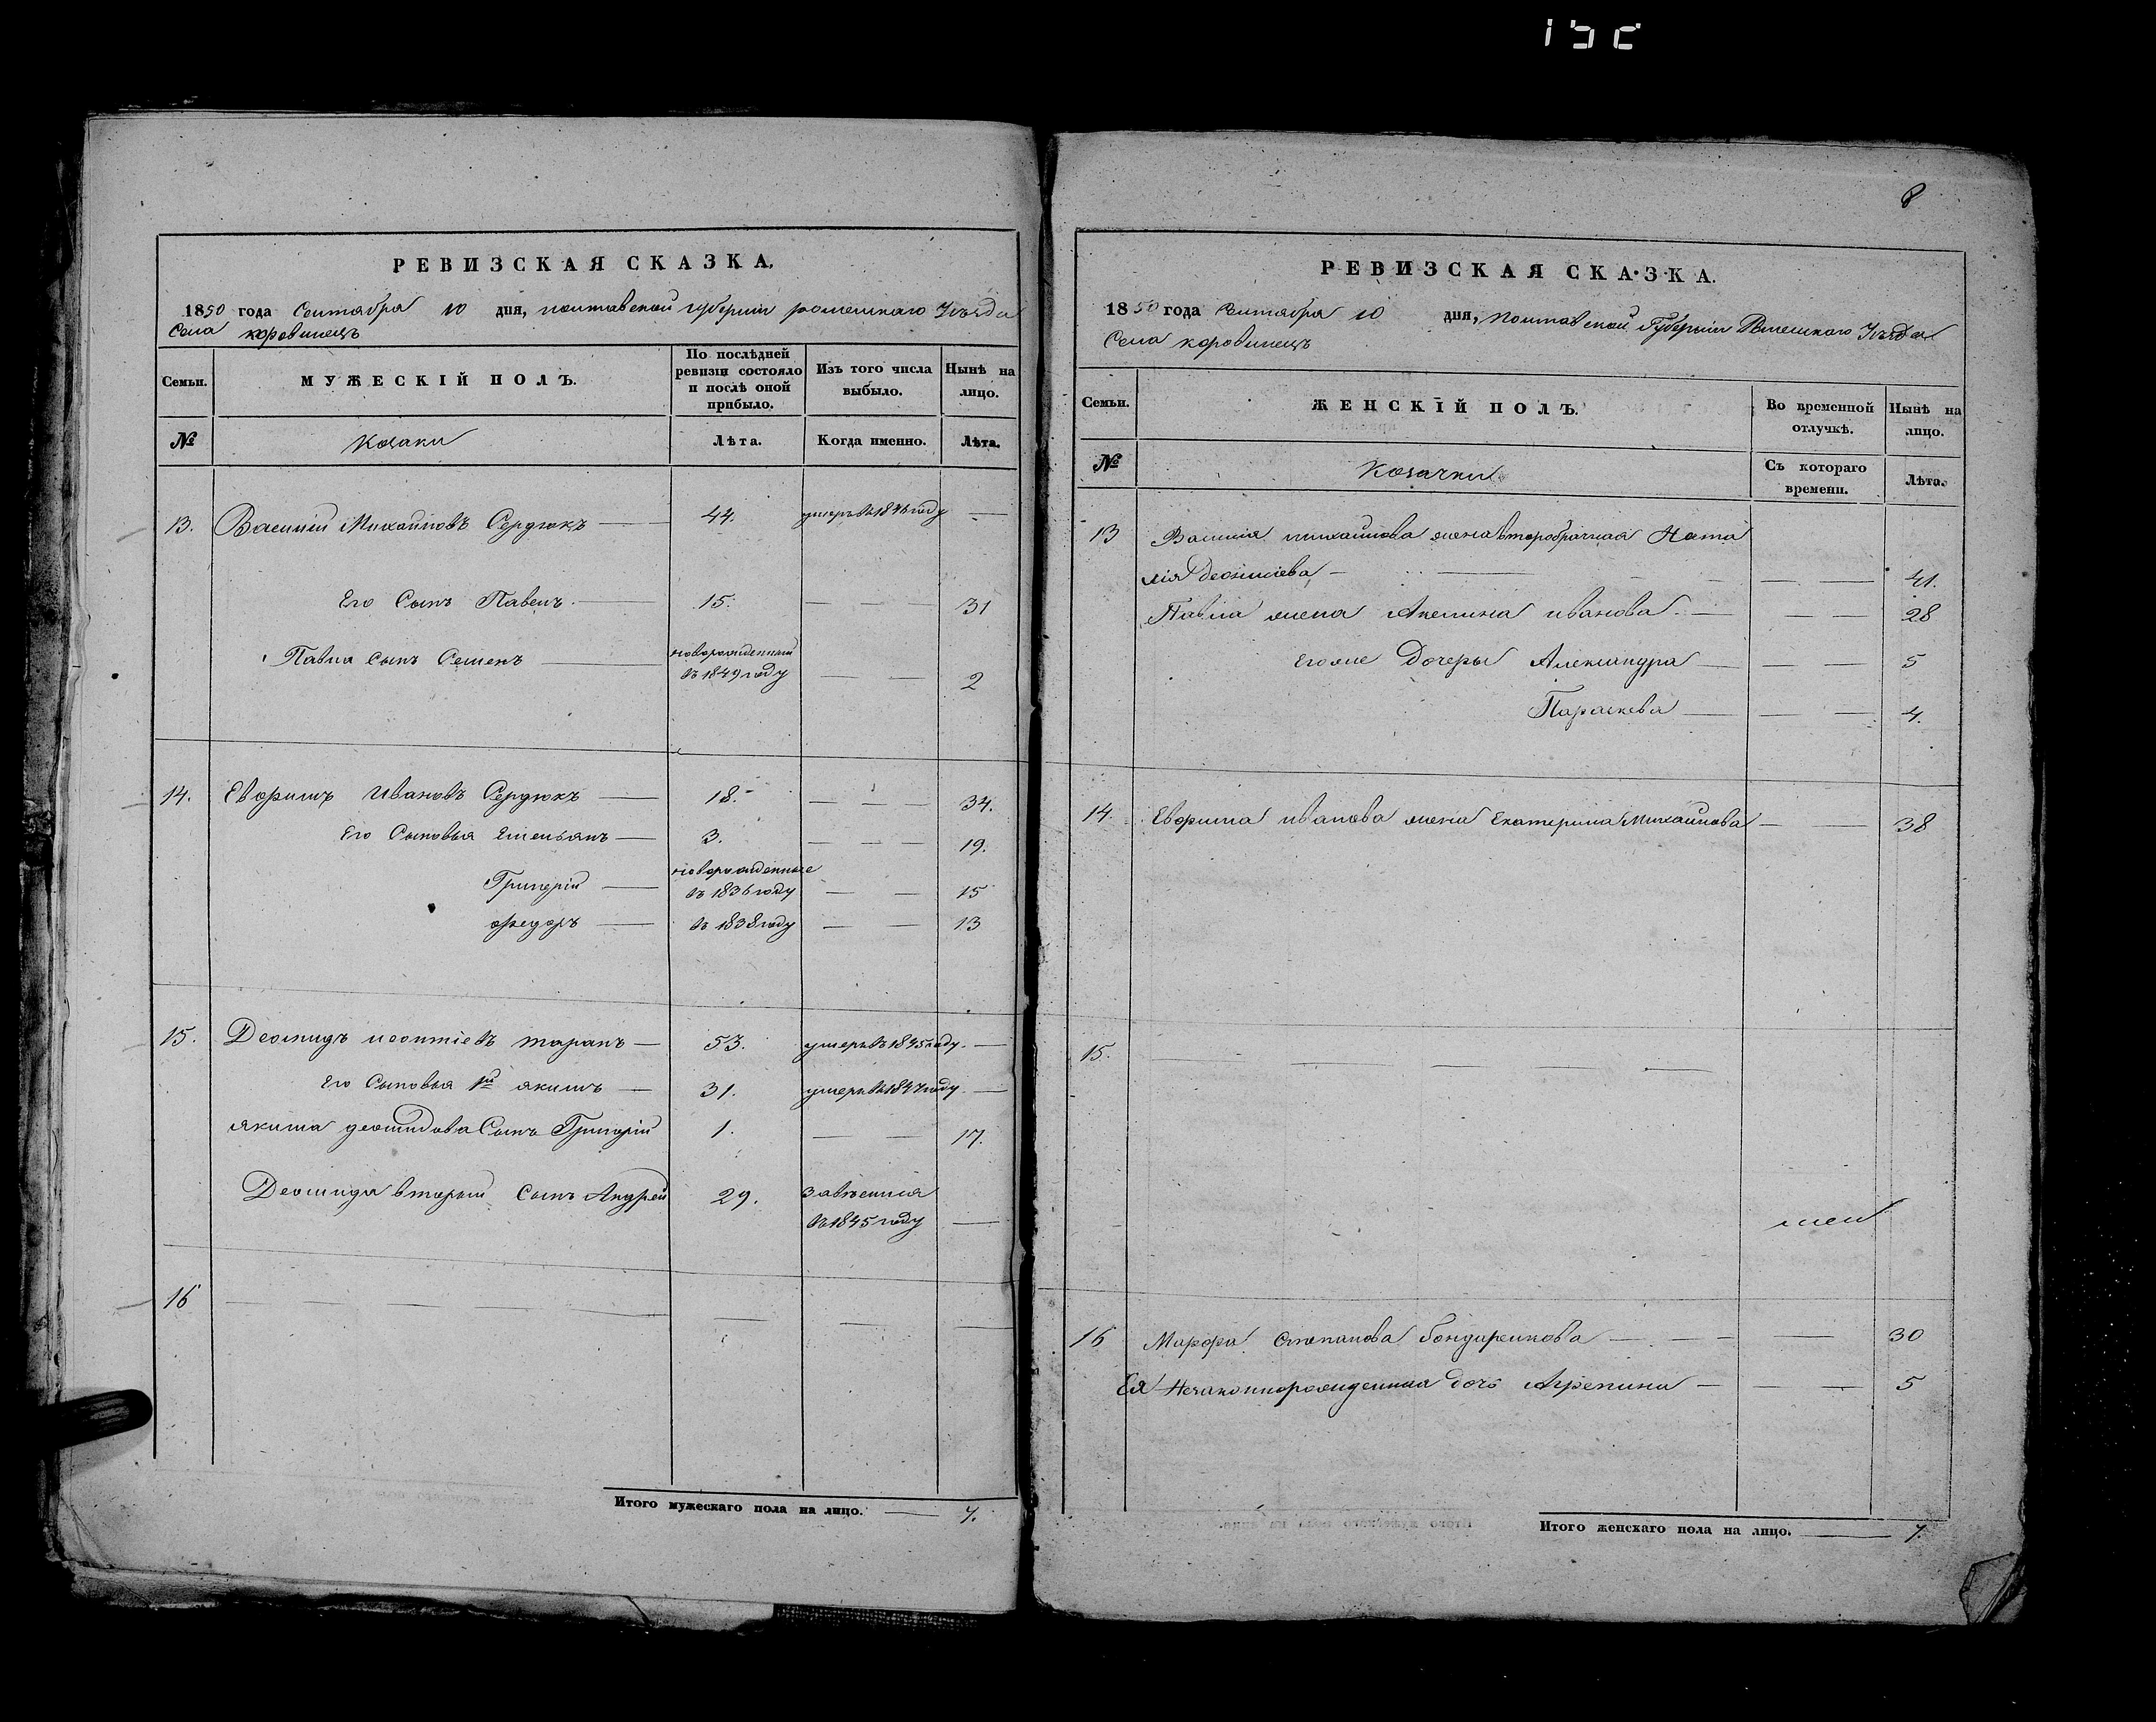 8
РЕВИЗСКАЯ СКАЗКА.
1850 года Сентября 10 дня, полтавской губерніи роменскаго Уѣзда
Села коровинецъ
Семьи.
МУЖЕСКІЙ ПОЛЪ.
По послѣдней
ревизіи состояло
и послѣ оной
прибыло.
Изъ того числа
выбыло.
Нынѣ на
лицо.
№
Козаки
Лѣта.
Когда именно.
Лѣта.
13. Василій Михайловъ Сердюкъ — 44. умеръ въ 1846 году —
Его Сынъ Павелъ — 15. — — 31
Павла Сынъ Семенъ — новорожденный
въ 1849 году — — 2
14. Евфимъ Ивановъ Сердюкъ — 18. — — — 34.
Его Сыновья Емельянъ — 3. — — — 19.
новорожденные
Григорій — въ 1836 году — — 15
Федоръ — въ 1838 году — — 13
15. Деомидъ леонтіевъ таранъ — 53. умеръ въ 1845 году. —
Его Сыновья 1й якимъ — 31. умеръ въ 1847 году —
якима деомидова Сынъ Григорій 1. — — 17.
Деомида вторый Сынъ Андрей 29.
въ 1845 году —
16 — — — — — — — —
Итого мужескаго пола на лицо. — 7.
РЕВИЗСКАЯ СКАЗКА.
1850 года Сентября 10 дня, Полтавской Губерніи Роменскаго Уѣзда
Села коровинецъ
Семьи.
ЖЕНСКІЙ ПОЛЪ.
Во временной
отлучкѣ.
Нынѣ на
лицо.
№
Козачки
Съ котораго
времени.
Лѣта.
13 Василія михайлова жена второбрачная Ната
лія Деонисіева — — — — — 41.
Павла жена Акелина иванова — — — 28
его же Дочеры Александра — — — 5
Параскева — — — 4.
14. Евфима иванова жена Екатерина Михайлова — — 38
15. — — — — —
16 Марфа Степанова бондаренкова — — — — 30
Ея Незаконнорожденная дочь Агрепина — — — 5
Итого женскаго пола на лицо. — 7.